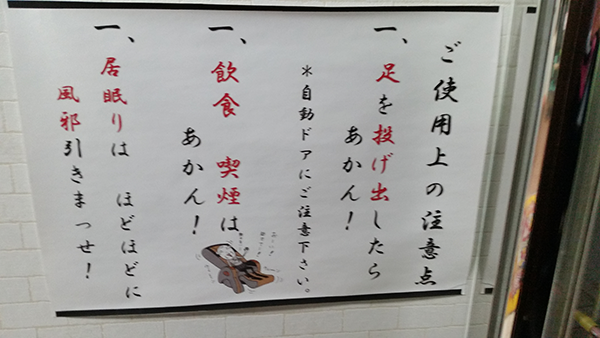 ご使用上の注意点
一、足を投げ出したら
あかん！
＊自動ドアにご注意下さい。
一、飲食 喫煙は
あかん！
一、居眠りは ほどほどに
風邪引きまっせ！